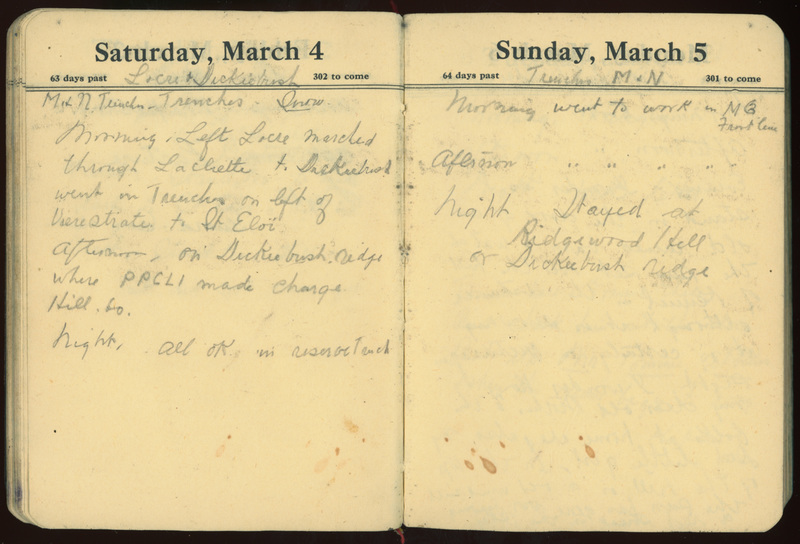 Saturday, March 4
63 days past Locre & Dickiebush 302 to come
M & N Trenches - Trenches. Snow.
Morning. Left Locre marched
through Laclette to Dickiebush
went in Trenches on left of
Vierestrate to St Eloi
Afternoon. on Dickiebush ridge
where PPCLI made charge
Hill 60.
Night. all ok, in reserve Trench
Sunday, March 5
64 days past Trenches M & N 301 to come
Morning went to work in MG
Front line
Afternoon " " " " "
Night Stayed at
Ridgewood Hill
or Dickiebush ridge